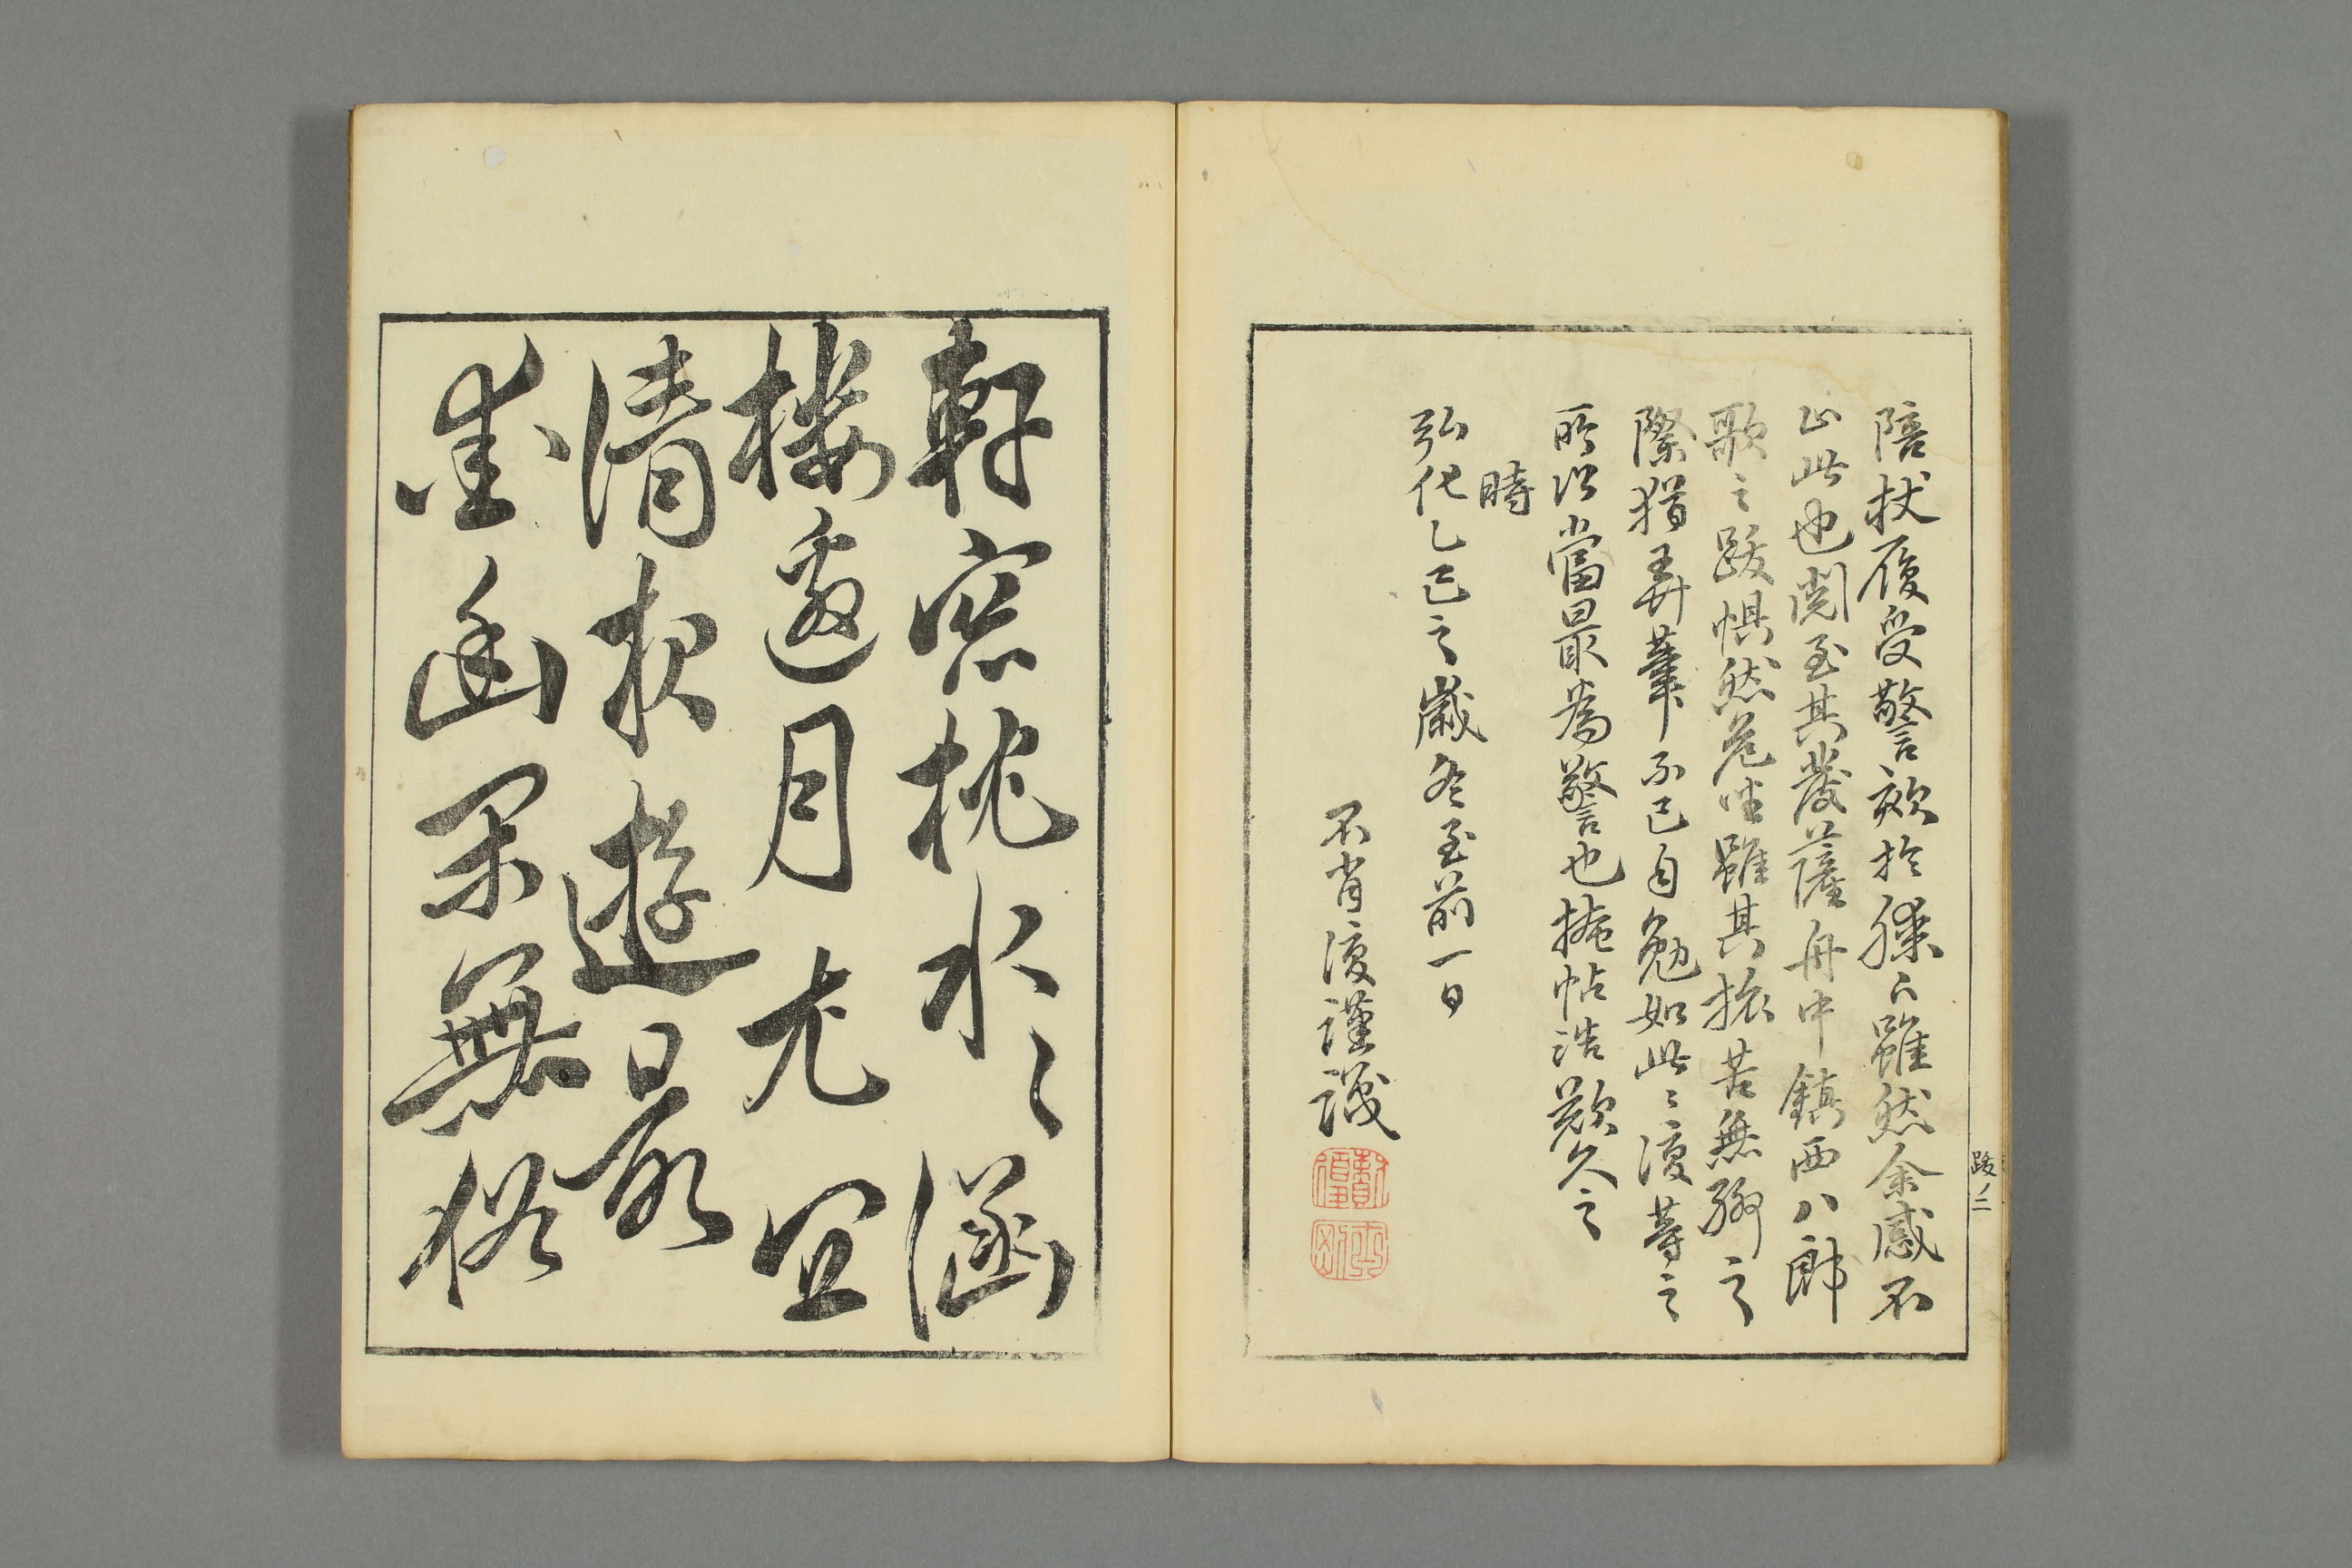 陪杖履受警欬於膝下雖然余感不
止此也閲至其發薩舟中鎮西八郎
歌之跋惧然危坐雖其旅苦無聊之
際猶弄筆不已自勉如此〻復等之
所以當最為警也掩帖浩歎久之
時
弘化乙巳之歳冬至前一日
不肖復謹識
跋ノ二
軒窓枕水〻涵
樓邀月尤宜
清夜遊最
愛幽深無俗